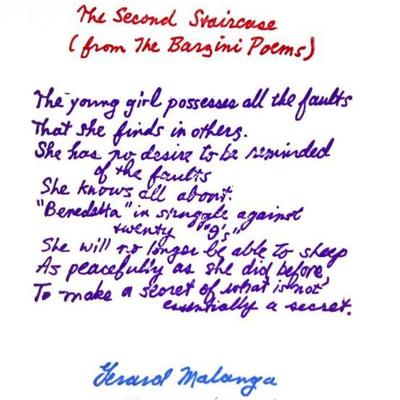 The Second Staircase
(from The Barzini Poems)
The young girl possesses all the faults
That she finds in others.
She has no desire to be reminded
of the faults
She knows all about.
"Benedetta" in struggle against
twenty "9's"
She will no longer be able to sleep
As peacefully as she did before
To make a secret of what is not
essentially a secret.
Gerard Malanga